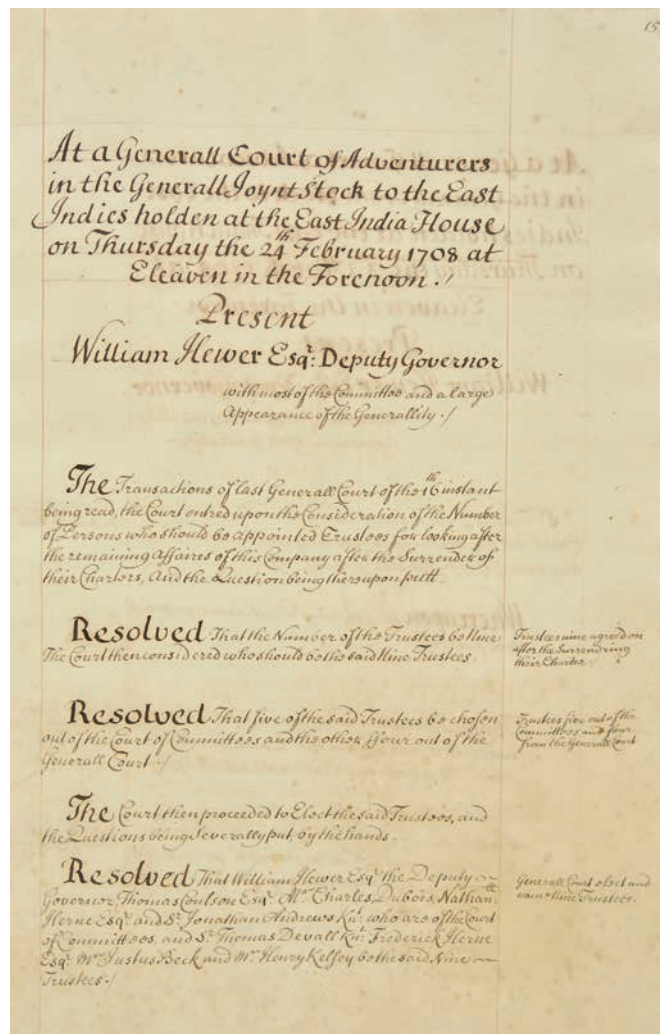 15
At a Generall Court of Adventurers
in the Generall Joynt Stock to the East
Indies holden at the East India House
on Thursday the 24th February 1708 at
Eleaven in the Forenoon ./
Present
William Hewer Esqr: Deputy Governor
with most of the Committee and a large
Appearance of the Generallity ./
The Transactions of last Generall Court of the 16th instant
being read, the Court entred upon the Consideration of the Number
of Persons who should be appointed Trustees for looking after
the remaining Affaires of this Company after the Surrender of
their Charters, And the Question being thereupon putt.
Resolved That the Number of the Trustees be Nine
The Court then considered who should be the said Nine Trustees.
Trustees nine agreed on
after the Surrendring
their Charter ./
Resolved That five of the said Trustees be chosen
out of the Court of Committees and the other four out of the
Generall Court ./
Trustees five out of the
Committees and four
from the Generall Court
The Court then proceeded to Elect the said Trustees, and
the Questions being Severally put, by the hands.
Resolved That William Hewer Esqr. the Deputy
Governor, Thomas Coulson Esqr. Mr. Charles Dubois, Nathan
Herne Esqr. and Sr. Jonathan Andrews Knt. who are of the Court
of Committees, and Sr. Thomas Devall Knt. Frederick Herne
Esqr. Mr. Justus Beck and Mr. Henry Kelsey be the said Nine
Trustees ./
Generall Court elect and
name Nine Trustees.